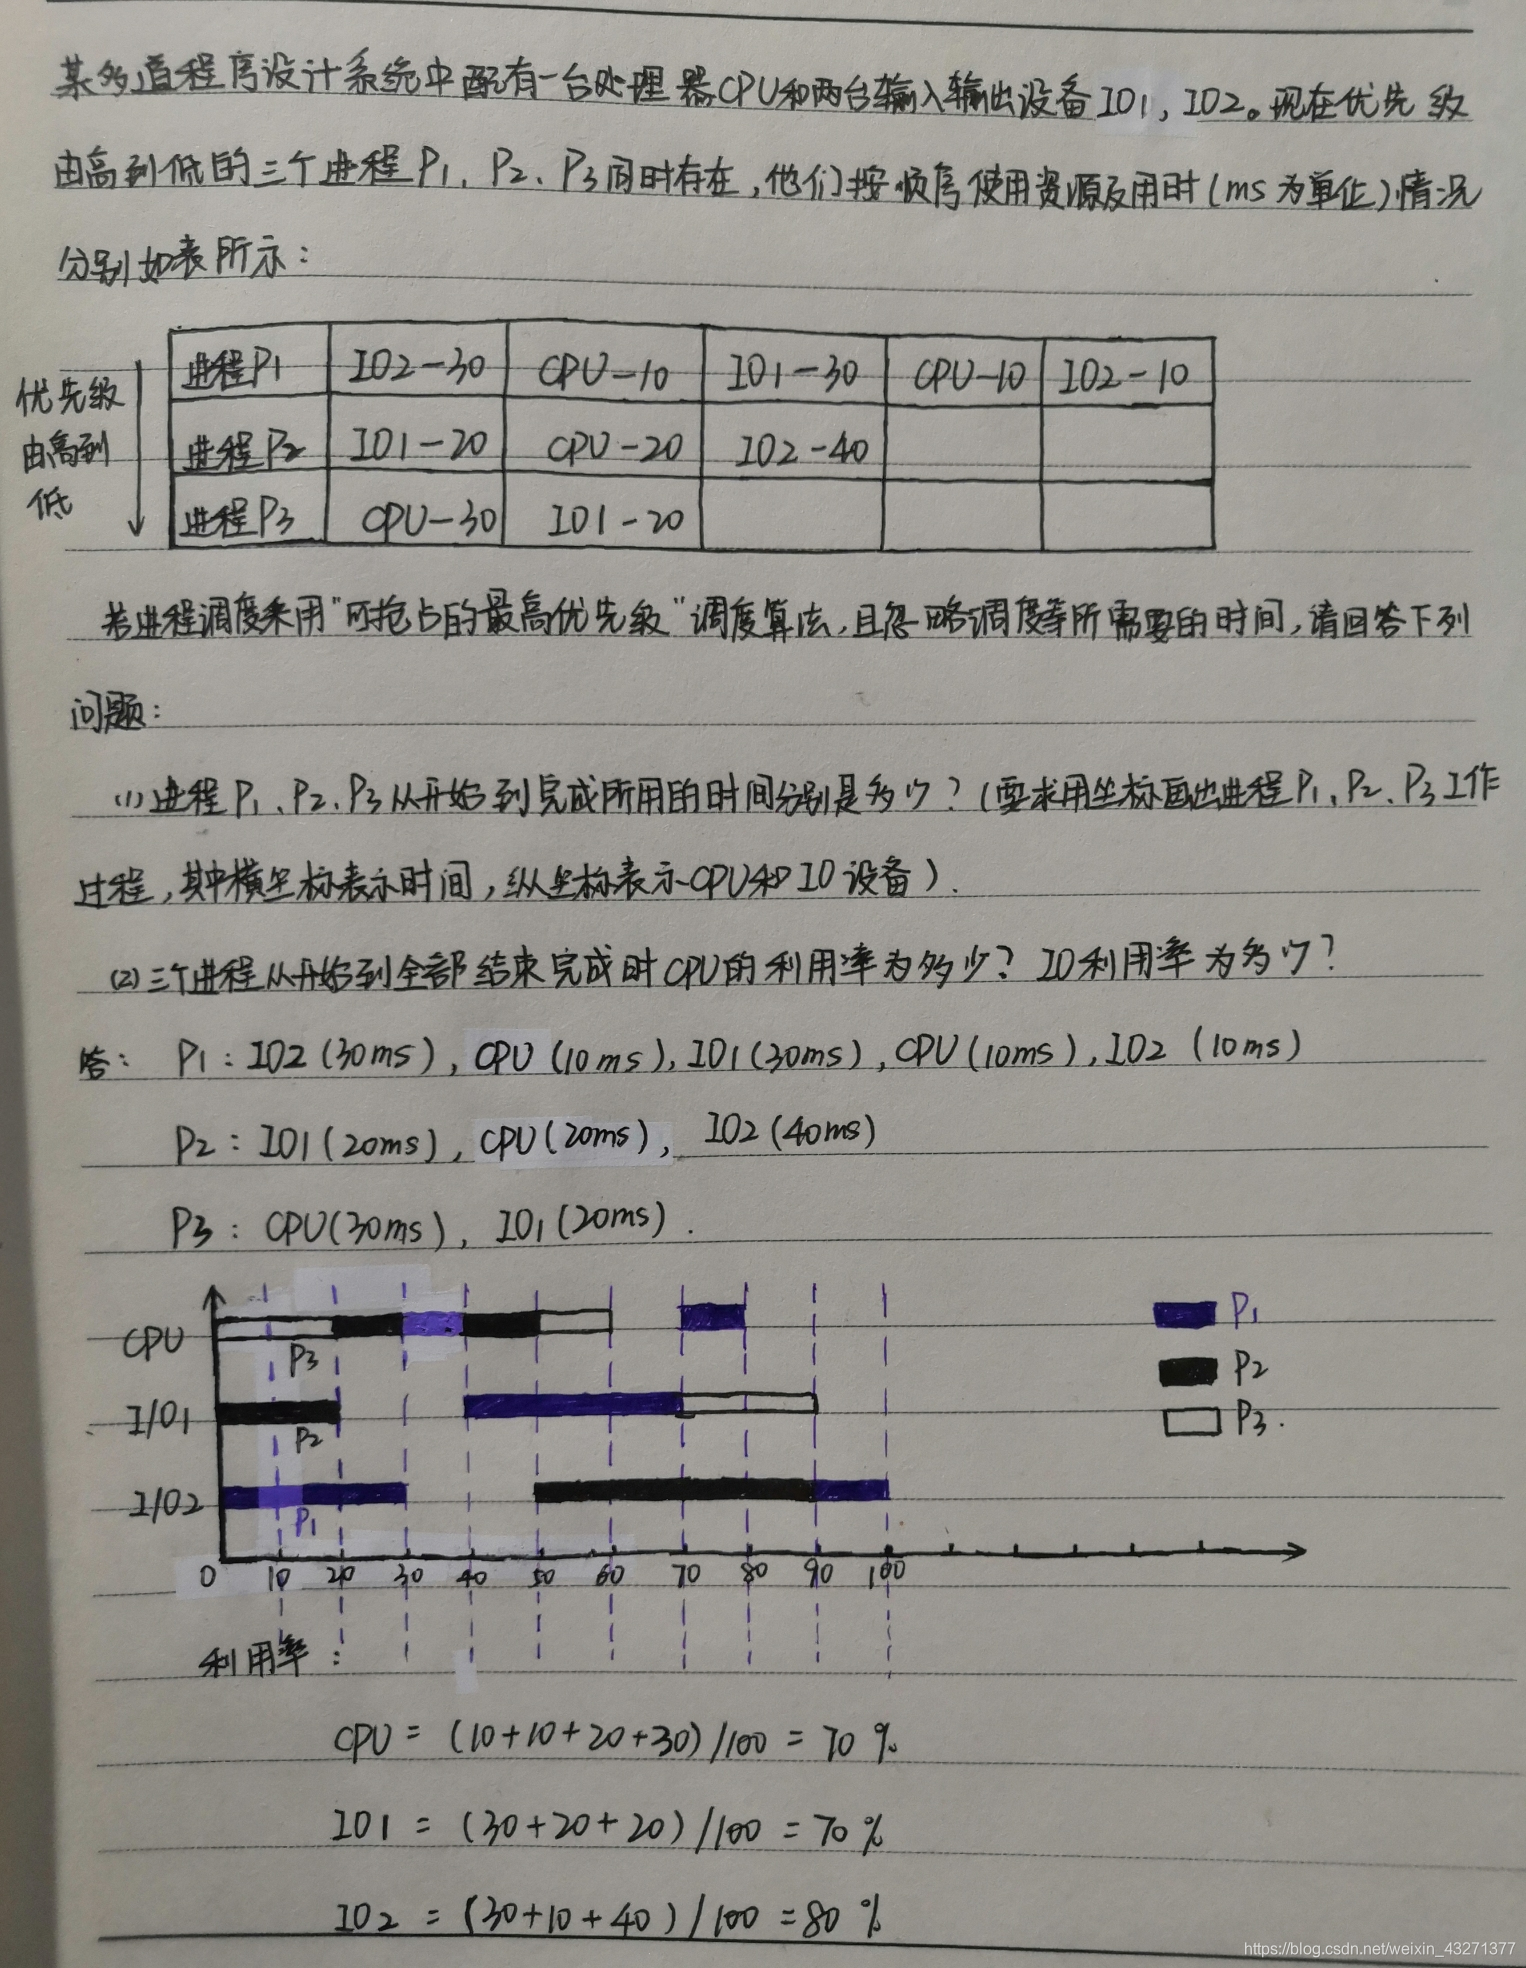 某多道程序设计系统中配有一台处理器CPU和两台输入输出设备IO1,IO2。现在优先级
由高到低的三个进程P1、P2、P3同时存在,他们按顺序使用资源及用时(ms为单位)情况
分别如表所示:
优先级由高到低
进程P1 IO2-30 CPU-10 IO1-30 CPU-10 IO2-10
进程P2 IO1-20 CPU-20 IO2-40
进程P3 CPU-30 IO1-20
若进程调度采用"可抢占的最高优先级"调度算法,且忽略调度等所需要的时间,请回答下列
问题:
(1)进程P1、P2、P3从开始到完成所用的时间分别是多少?(要求用坐标画出进程P1、P2、P3工作
过程,其中横坐标表示时间,纵坐标表示CPU和IO设备).
(2)三个进程从开始到全部结束完成时CPU的利用率为多少?IO利用率为多少?
答: P1:IO2(30ms),CPU(10ms),IO1(30ms),CPU(10ms),IO2(10ms)
P2:IO1(20ms),CPU(20ms),IO2(40ms)
P3:CPU(30ms),IO1(20ms).
CPU
P3
I/O1
P2
I/O2
P1
P1
P2
P3.
0 10 20 30 40 50 60 70 80 90 100
利用率:
CPU=(10+10+20+30)/100=70%
IO1=(30+20+20)/100=70%
IO2=(30+10+40)/100=80%
https://blog.csdn.net/weixin_43271377